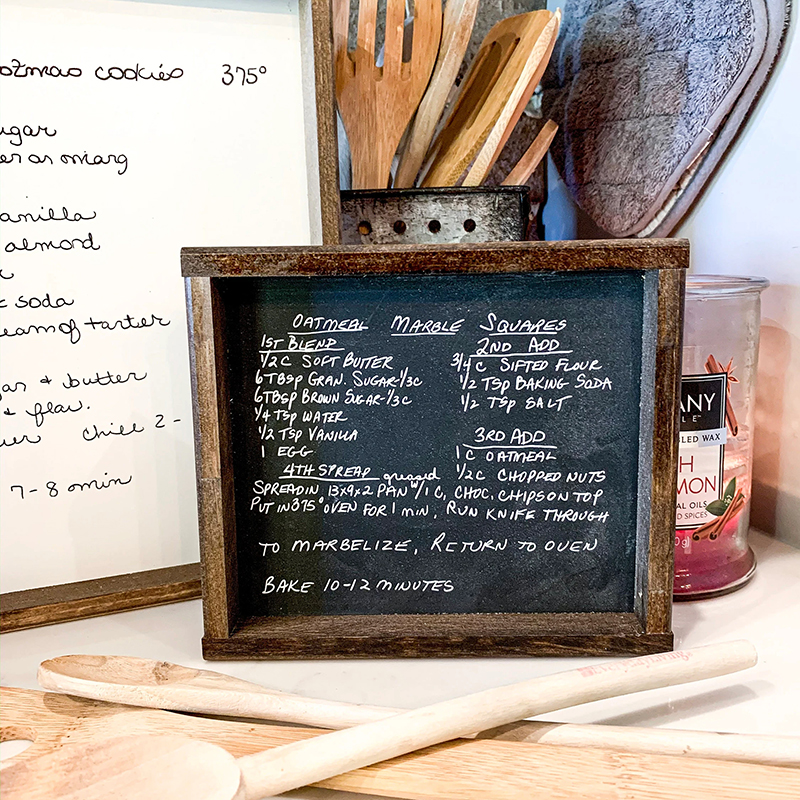 cookies 375°
or marg
vanilla
almond
soda
cream of tarter
& butter
& flav.
chill 2-
7-8 min
OATMEAL MARBLE SQUARES
1ST BLEND
1/2 C SOFT BUTTER
6 TBSP GRAN. SUGAR-1/3C
6 TBSP BROWN SUGAR-1/3C
1/4 TSP WATER
1/2 TSP VANILLA
1 EGG
2ND ADD
3/4 C SIFTED FLOUR
1/2 TSP BAKING SODA
1/2 TSP SALT
3RD ADD
1 C OATMEAL
1/2 C CHOPPED NUTS
4TH SPREAD greased
SPREAD IN 13x9x2 PAN W/1 C, CHOC. CHIPS ON TOP
PUT IN 375° OVEN FOR 1 MIN, RUN KNIFE THROUGH
TO MARBELIZE, RETURN TO OVEN
BAKE 10-12 MINUTES
ANY
WAX
OILS
SPICES